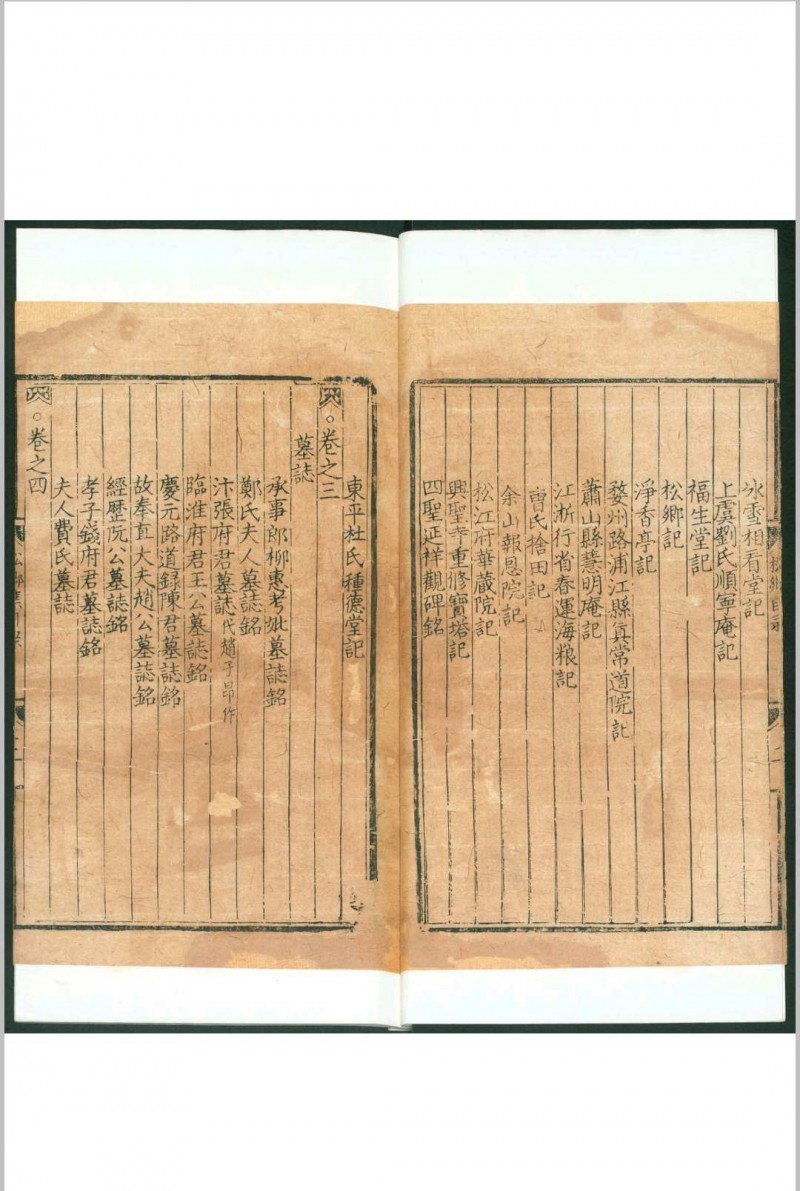 冰雪相看堂記
上虞劉氏順寧庵記
福生堂記
松鄉記
淨香亭記
婺州路浦江縣真常道院記
蕭山縣慧明庵記
江浙行省春運海粮記
曹氏捨田記
余山報恩院記
松江府華藏院記
興聖寺重修寶塔記
四聖延祥觀碑銘
東平杜氏種德堂記
卷之三
墓誌
承事郎柳惠考妣墓誌銘
鄭氏夫人墓誌銘
汴張府君墓誌代趙子昂作
臨淮府君王公墓誌銘
慶元路道録陳君墓誌銘
故奉直大夫趙公墓誌銘
經歷阮公墓誌銘
孝子錢府君墓誌銘
夫人費氏墓誌
卷之四